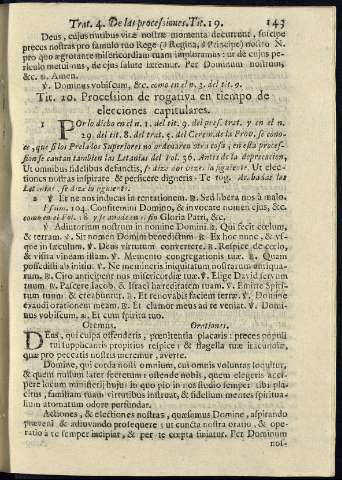 Trat. 4. De las processiones. Tit. 19. 143
Deus, cujus nutibus vitæ nostræ momenta decurrunt, suscipe
preces nostras pro famulo tuo Rege (ò Regina, ò Principe) nostro N.
pro quo ægrotante misericordiam tuam imploramus: ut de cujus pe-
riculo metuimus, de ejus salute lætemur. Per Dominum nostrum,
&c. ℟. Amen.
℣. Dominus vobiscum, &c. como en el n. 3. del tit. 9.
Tit. 20. Procession de rogativa en tiempo de
elecciones capitulares.
1 POr lo dicho en el n. 1. del tit. 9. del pres. trat. y en el n.
29. del tit. 8. del trat. 5. del Cerem. de la Prov. se cono-
ce, que si los Prelados Superiores no ordenaren otra cosa; en esta proces-
sion se cantan tambien las Letanias del Fol. 56. Antes de la deprecacion,
Ut omnibus fidelibus defunctis, se dize dos vezes la siguiente. Ut elec-
tiones nostras inspirare & perficere digneris. Te rog. Acabadas las
Letanias, se dize lo siguiente.
2 ℣. Et ne nos inducas in tentationem. ℟. Sed libera nos à malo.
Psalm. 104. Confitemini Domino, & invocate nomen ejus, &c.
como en el Fol. 16. y se anade en fin Gloria Patri, &c.
℣. Adjutorium nostrum in nomine Domini. ℟. Qui fecit cœlum,
& terram. ℣. Sit nomen Domini benedictum. ℟. Ex hoc nunc, & us-
que in sæculum. ℣. Deus virtutum convertere. ℟. Respice de cœlo,
& visita vineam istam. ℣. Memento congregationis tuæ. ℟. Quam
possedisti ab initio. ℣. Ne memineris iniquitatum nostrarum antiqua-
rum. ℟. Cito anticipent nos misericordiæ tuæ. ℣. Elige David servum
tuum. ℟. Pascere Jacob, & Israel hæreditatem tuam. ℣. Emitte Spiri-
tum tuum & creabuntur. ℟. Et renovabis faciem terræ. ℣. Domine
exaudi orationem meam. ℟. Et clamor meus ad te veniat. ℣. Domi-
nus vobiscum. ℟. Et cum spiritu tuo.
Oremus. Orationes.
DEus, qui culpa offenderis, pœnitentia placaris: preces populi
tui supplicantis propitius respice: & flagella tuæ iracundiæ,
quæ pro peccatis nostris meremur, averte.
Domine, qui corda nosti omnium, cui omnis voluntas loquitur,
& quem nullum latet secretum: ostende nobis, quem elegeris acci-
pere locum ministerij hujus: ut quo pio in nos studio semper tibi pla-
citus, familiam tuam virtutibus instruat, & fidelium mentes spiritua-
lium aromatum odore perfundat.
Actiones, & electiones nostras, quæsumus Domine, aspirando
præveni & adjuvando prosequere: ut cuncta nostra oratio, & ope-
ratio à te semper incipiat, & per te cœpta finiatur. Per Dominum
nos-